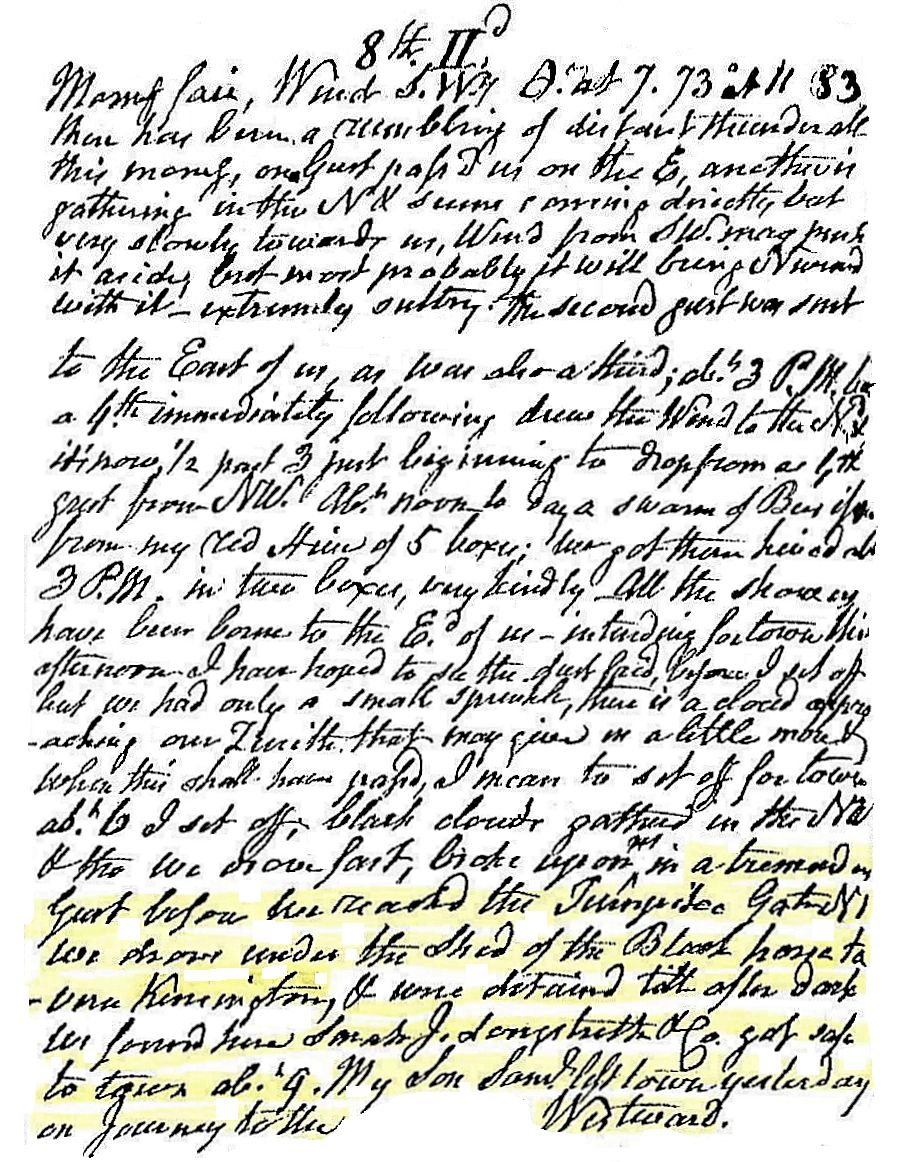 8th. II.d
Morng fair, Wind S.Wy O. at 7. 73 at 11 83
there has been a rumbling of distant thunder all
this morng, one Gust pass'd us on the E, another is
gathering in the N & seems coming directly but
very slowly towards us, Wind from SW. may push
it aside, but most probably it will bring Nward
with it – extremely sultry. the second gust was sent
to the East of us, as was also a third; ab.t 3 P.M. but
a 4th immediately following drew the Wind to the N.
it's now 1/2 past 3 just beginning to drop from a 4th
gust from NW. Ab.t noon to day a swarm of Bees
from my red Hive of 5 boxes; we got them hived ab
3 P.M. in two boxes, very kindly. All the showers
have been borne to the E.d of us – intending for town this
afternoon I have hoped to see the dust laid, before I set off
but we had only a small sprinkle, there is a cloud appro
-aching our Zenith that may give us a little more &
when this shall have pass'd, I mean to set off for town
ab.t 6 I set off, black clouds gathered in the NW
& tho we drove fast, broke upon us in a tremend us
Gust before we reached the Turnpike Gate No 1
we drove under the Shed of the Black horse ta
-vern Kensington, & were detaind till after dark
we found here Sarah J. Longstreth & Co. got safe
to town ab.t 9. My Son Saml. left town yesterday
on Journey to the Westward.